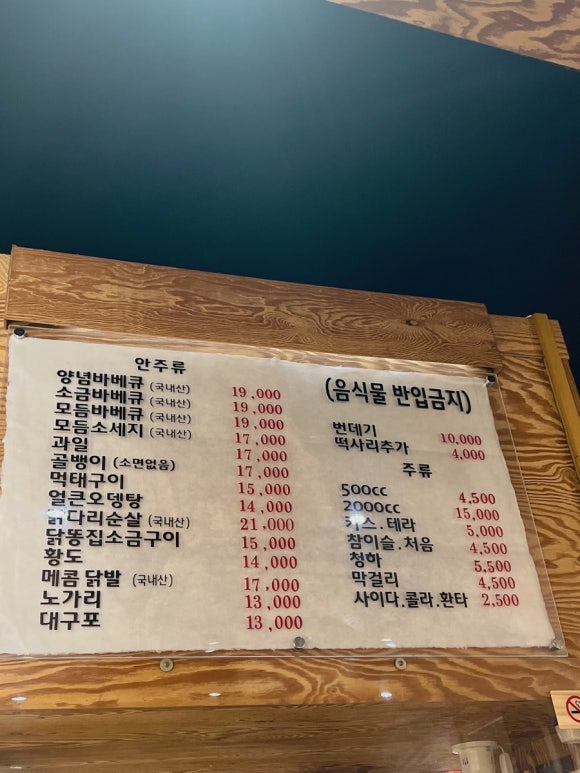 안주류
양념바베큐 (국내산) 19,000
소금바베큐 (국내산) 19,000
모듬바베큐 (국내산) 19,000
모듬소세지 (국내산) 17,000
과일 17,000
골뱅이 (소면없음) 17,000
먹태구이 15,000
얼큰오뎅탕 14,000
닭다리순살 (국내산) 21.000
닭똥집소금구이 15,000
황도 14,000
메콤닭발 (국내산) 17.000
노가리 13,000
대구포 13,000
(음식물 반입금지)
번데기 10,000
떡사리추가 4,000
주류
500cc 4,500
2000cc 15,000
카스.테라 5,000
참이슬.처음 4,500
청하 5,500
막걸리 4,500
사이다.콜라.환타 2,500